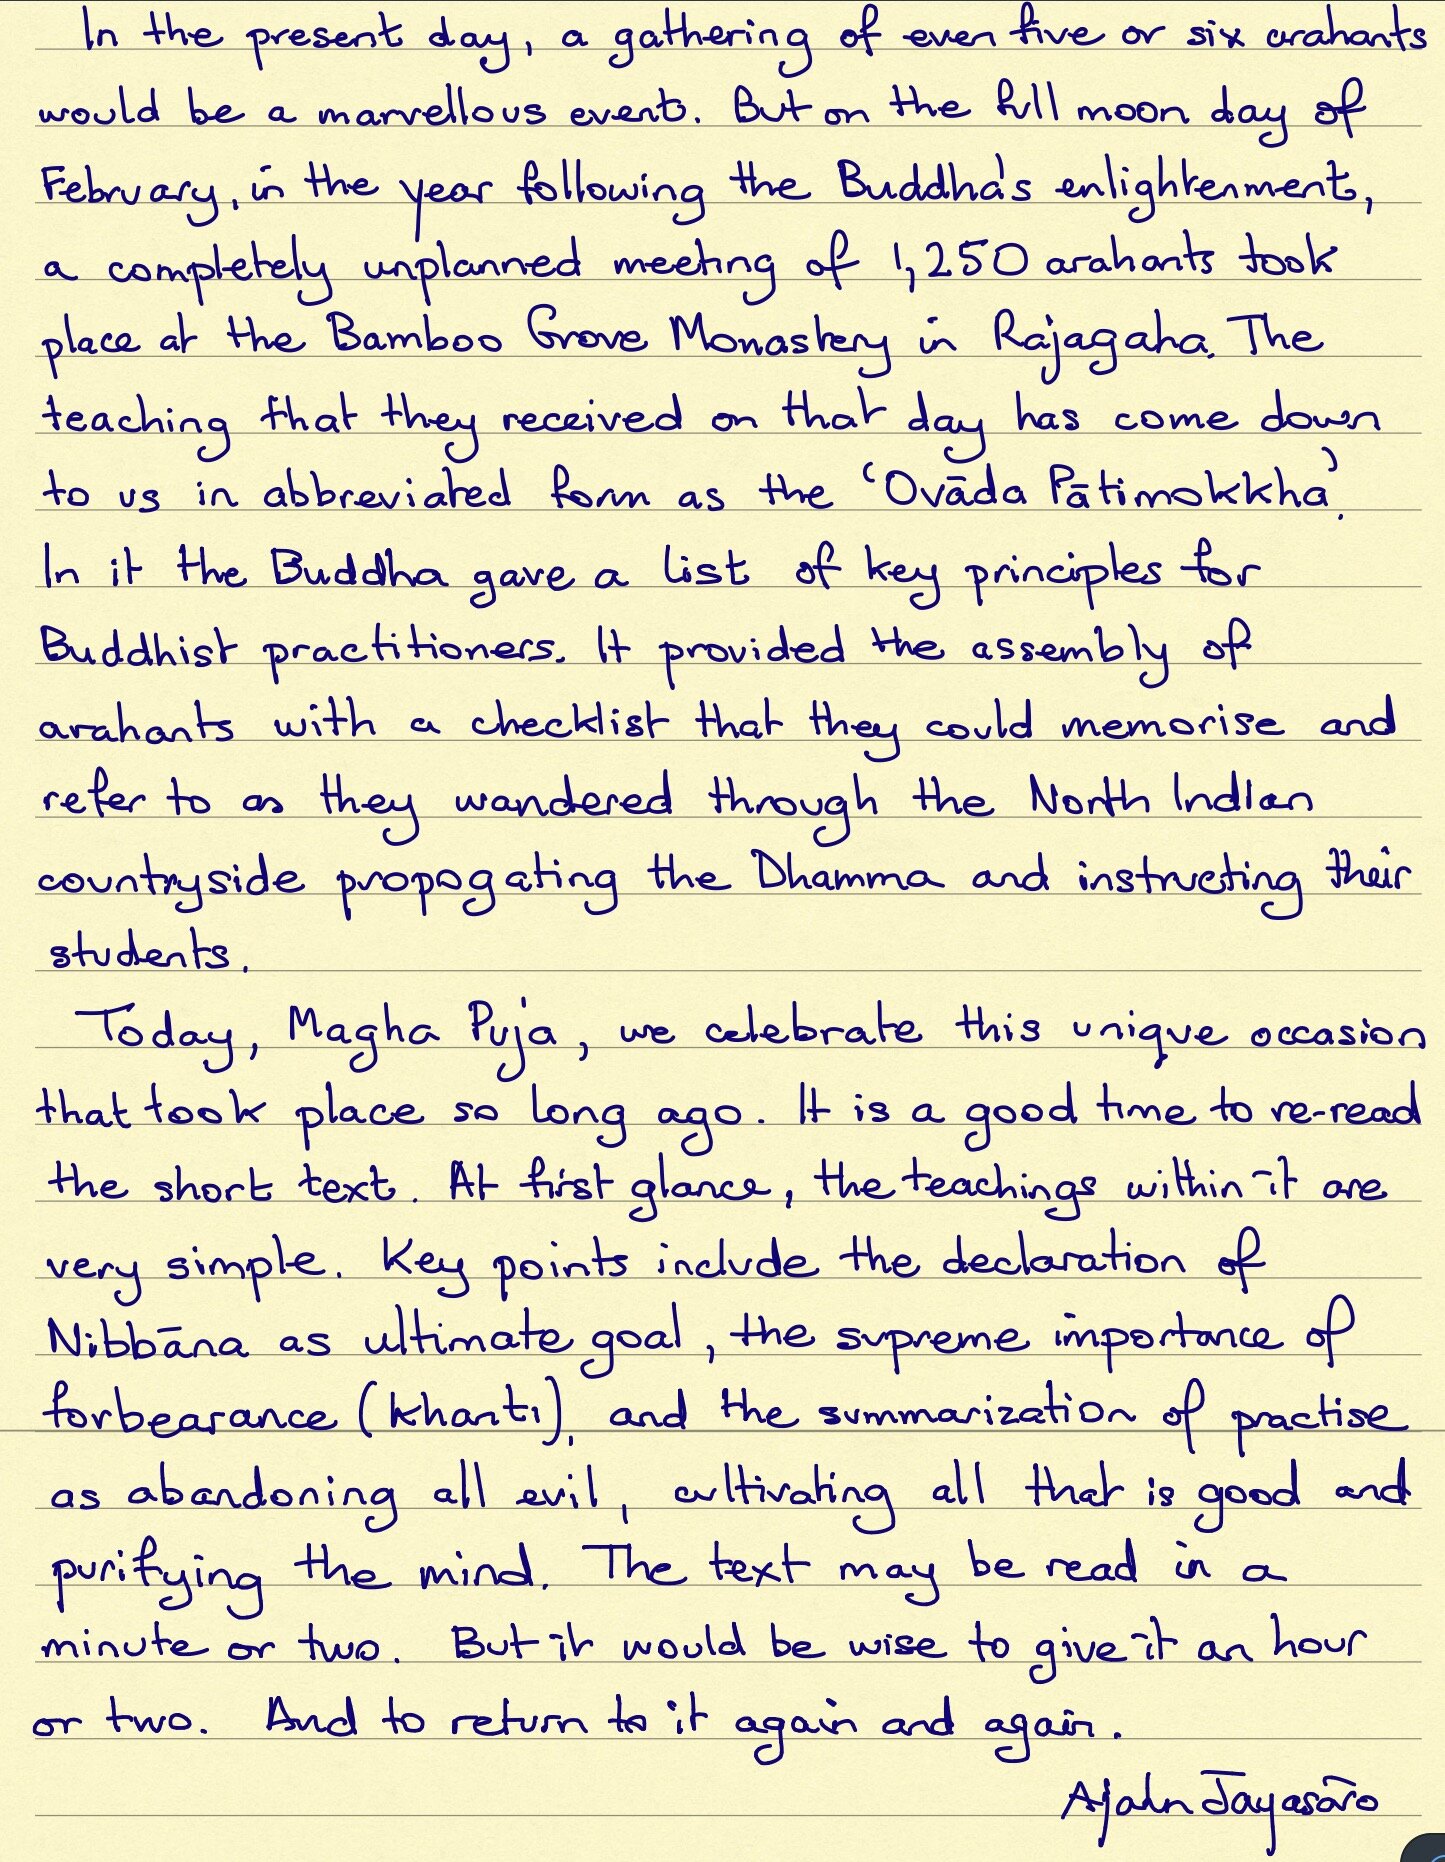 In the present day, a gathering of even five or six arahants
would be a marvellous event. But on the full moon day of
February, in the year following the Buddha's enlightenment,
a completely unplanned meeting of 1,250 arahants took
place at the Bamboo Grove Monastery in Rajagaha. The
teaching that they received on that day has come down
to us in abbreviated form as the 'Ovāda Pātimokkha'.
In it the Buddha gave a list of key principles for
Buddhist practitioners. It provided the assembly of
arahants with a checklist that they could memorise and
refer to as they wandered through the North Indian
countryside propogating the Dhamma and instructing their
students.
Today, Magha Puja, we celebrate this unique occasion
that took place so long ago. It is a good time to re-read
the short text. At first glance, the teachings within it are
very simple. Key points include the declaration of
Nibbāna as ultimate goal, the supreme importance of
forbearance (khanti), and the summarization of practise
as abandoning all evil, cultivating all that is good and
purifying the mind. The text may be read in a
minute or two. But it would be wise to give it an hour
or two. And to return to it again and again.
Ajahn Jayasāro